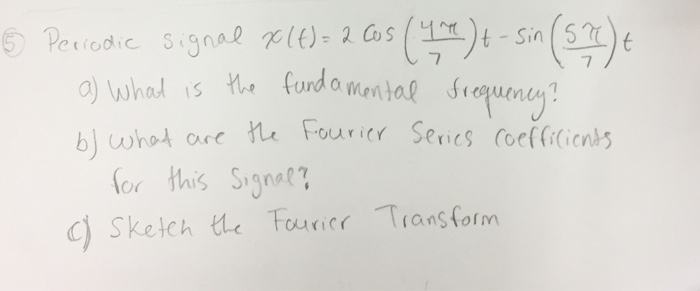 ⑤ Periodic signal x(t) = 2 Cos (4π/7) t - sin (5π/7) t
a) What is the fundamental frequency?
b) what are the Fourier Series coefficients
for this signal?
c) Sketch the Fourier Transform